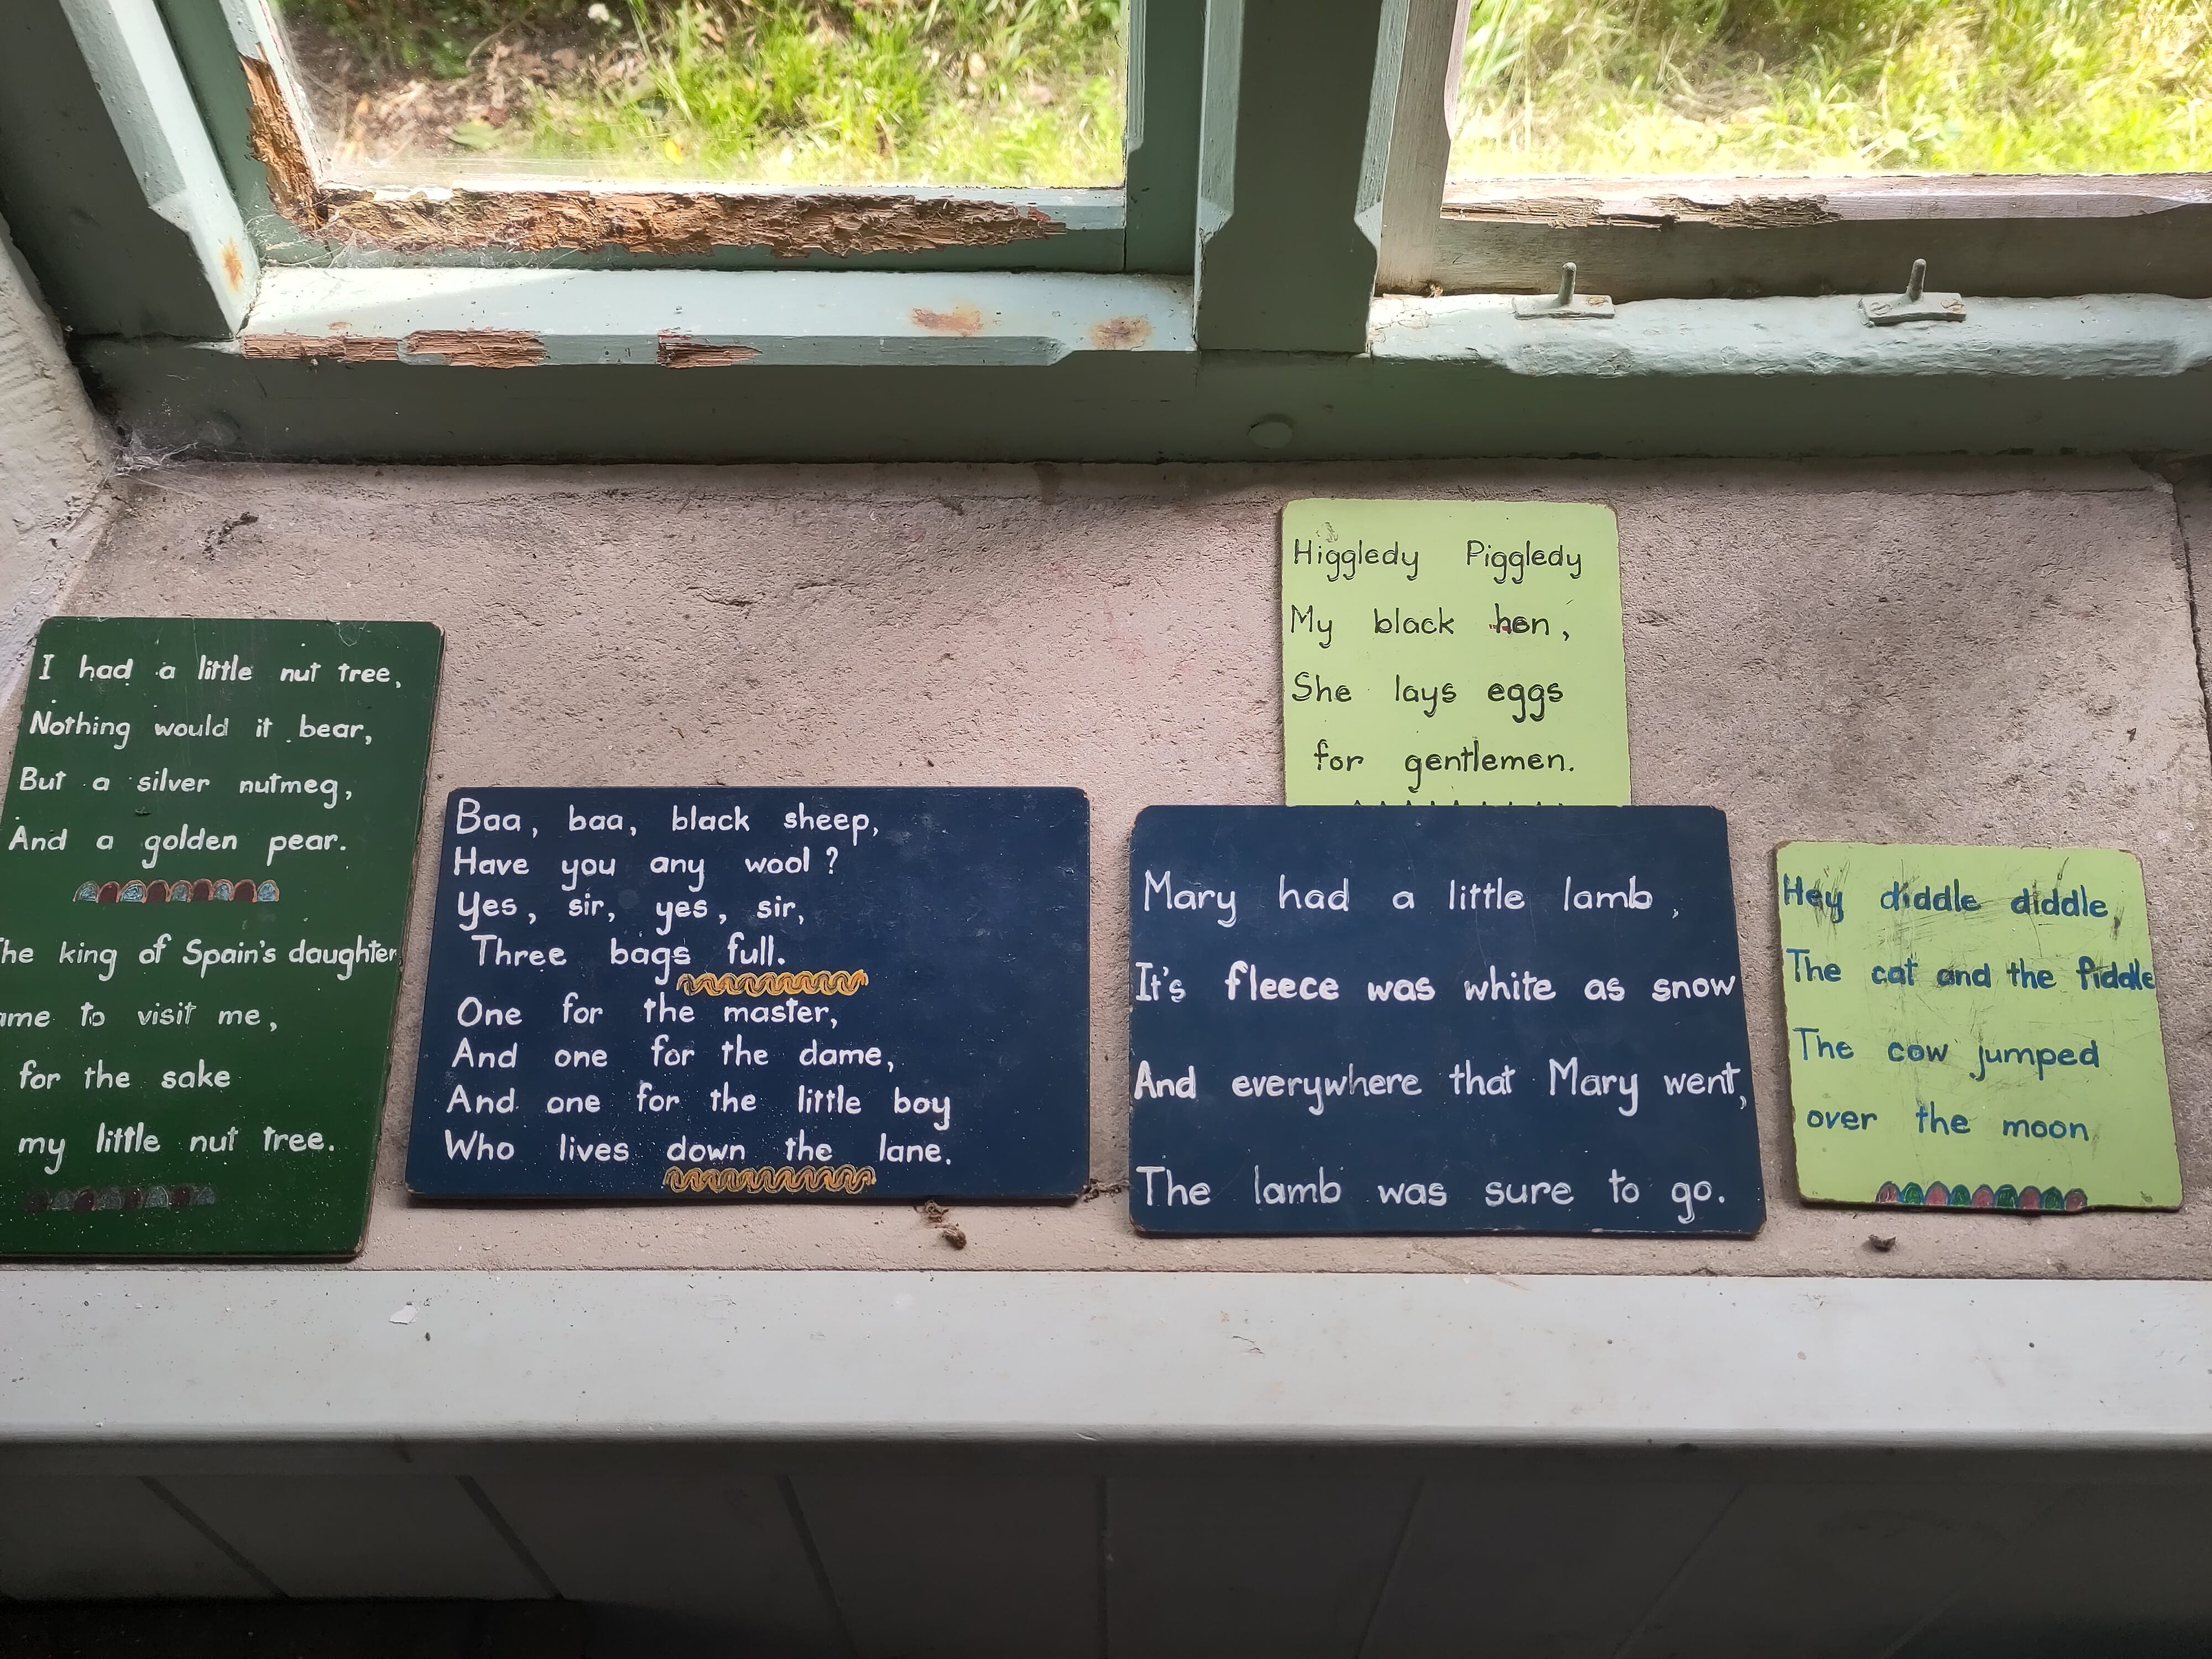 I had a little nut tree,
Nothing would it bear,
But a silver nutmeg,
And a golden pear.
king of Spain's daughter
to visit me,
for the sake
my little nut tree.
Baa, baa, black sheep,
Have you any wool?
Yes, sir, yes, sir,
Three bags full.
One for the master,
And one for the dame,
And one for the little boy
Who lives down the lane.
Higgledy Piggledy
My black hen,
She lays eggs
for gentlemen.
Mary had a little lamb,
It's fleece was white as snow
And everywhere that Mary went,
The lamb was sure to go.
Hey diddle diddle,
The cat and the fiddle
The cow jumped
over the moon